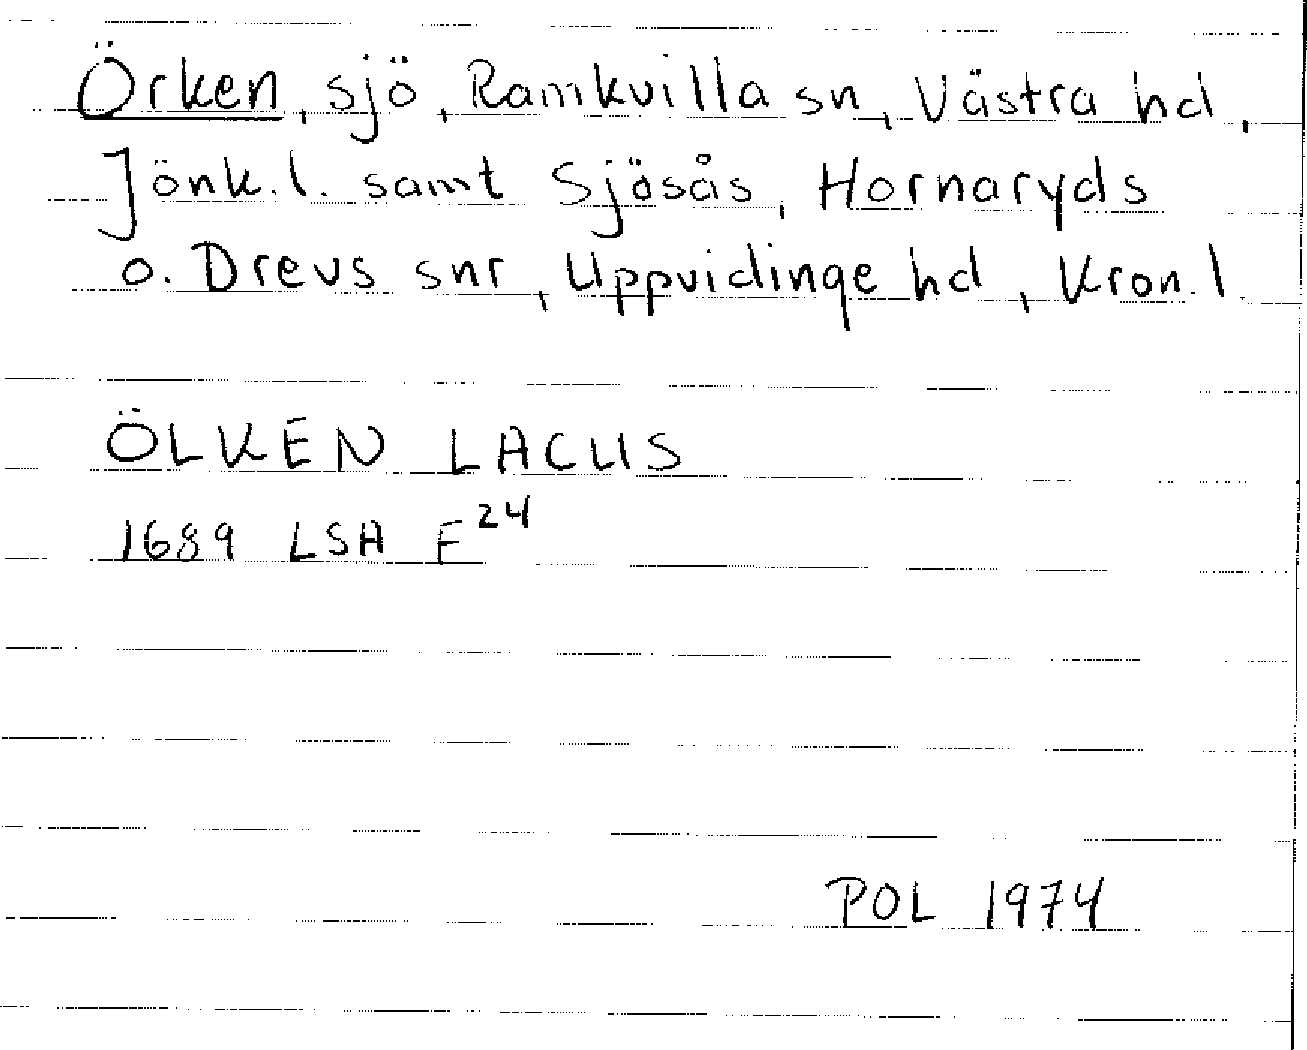 Örken, sjö, Ramkvilla sn, Västra hd,
Jönk. l. samt Sjösås, Hornaryds
o. Drevs snr, Uppvidinge hd, Kron. l.
ÖLKEN LACUS
1689 LSA F²⁴
POL 1974